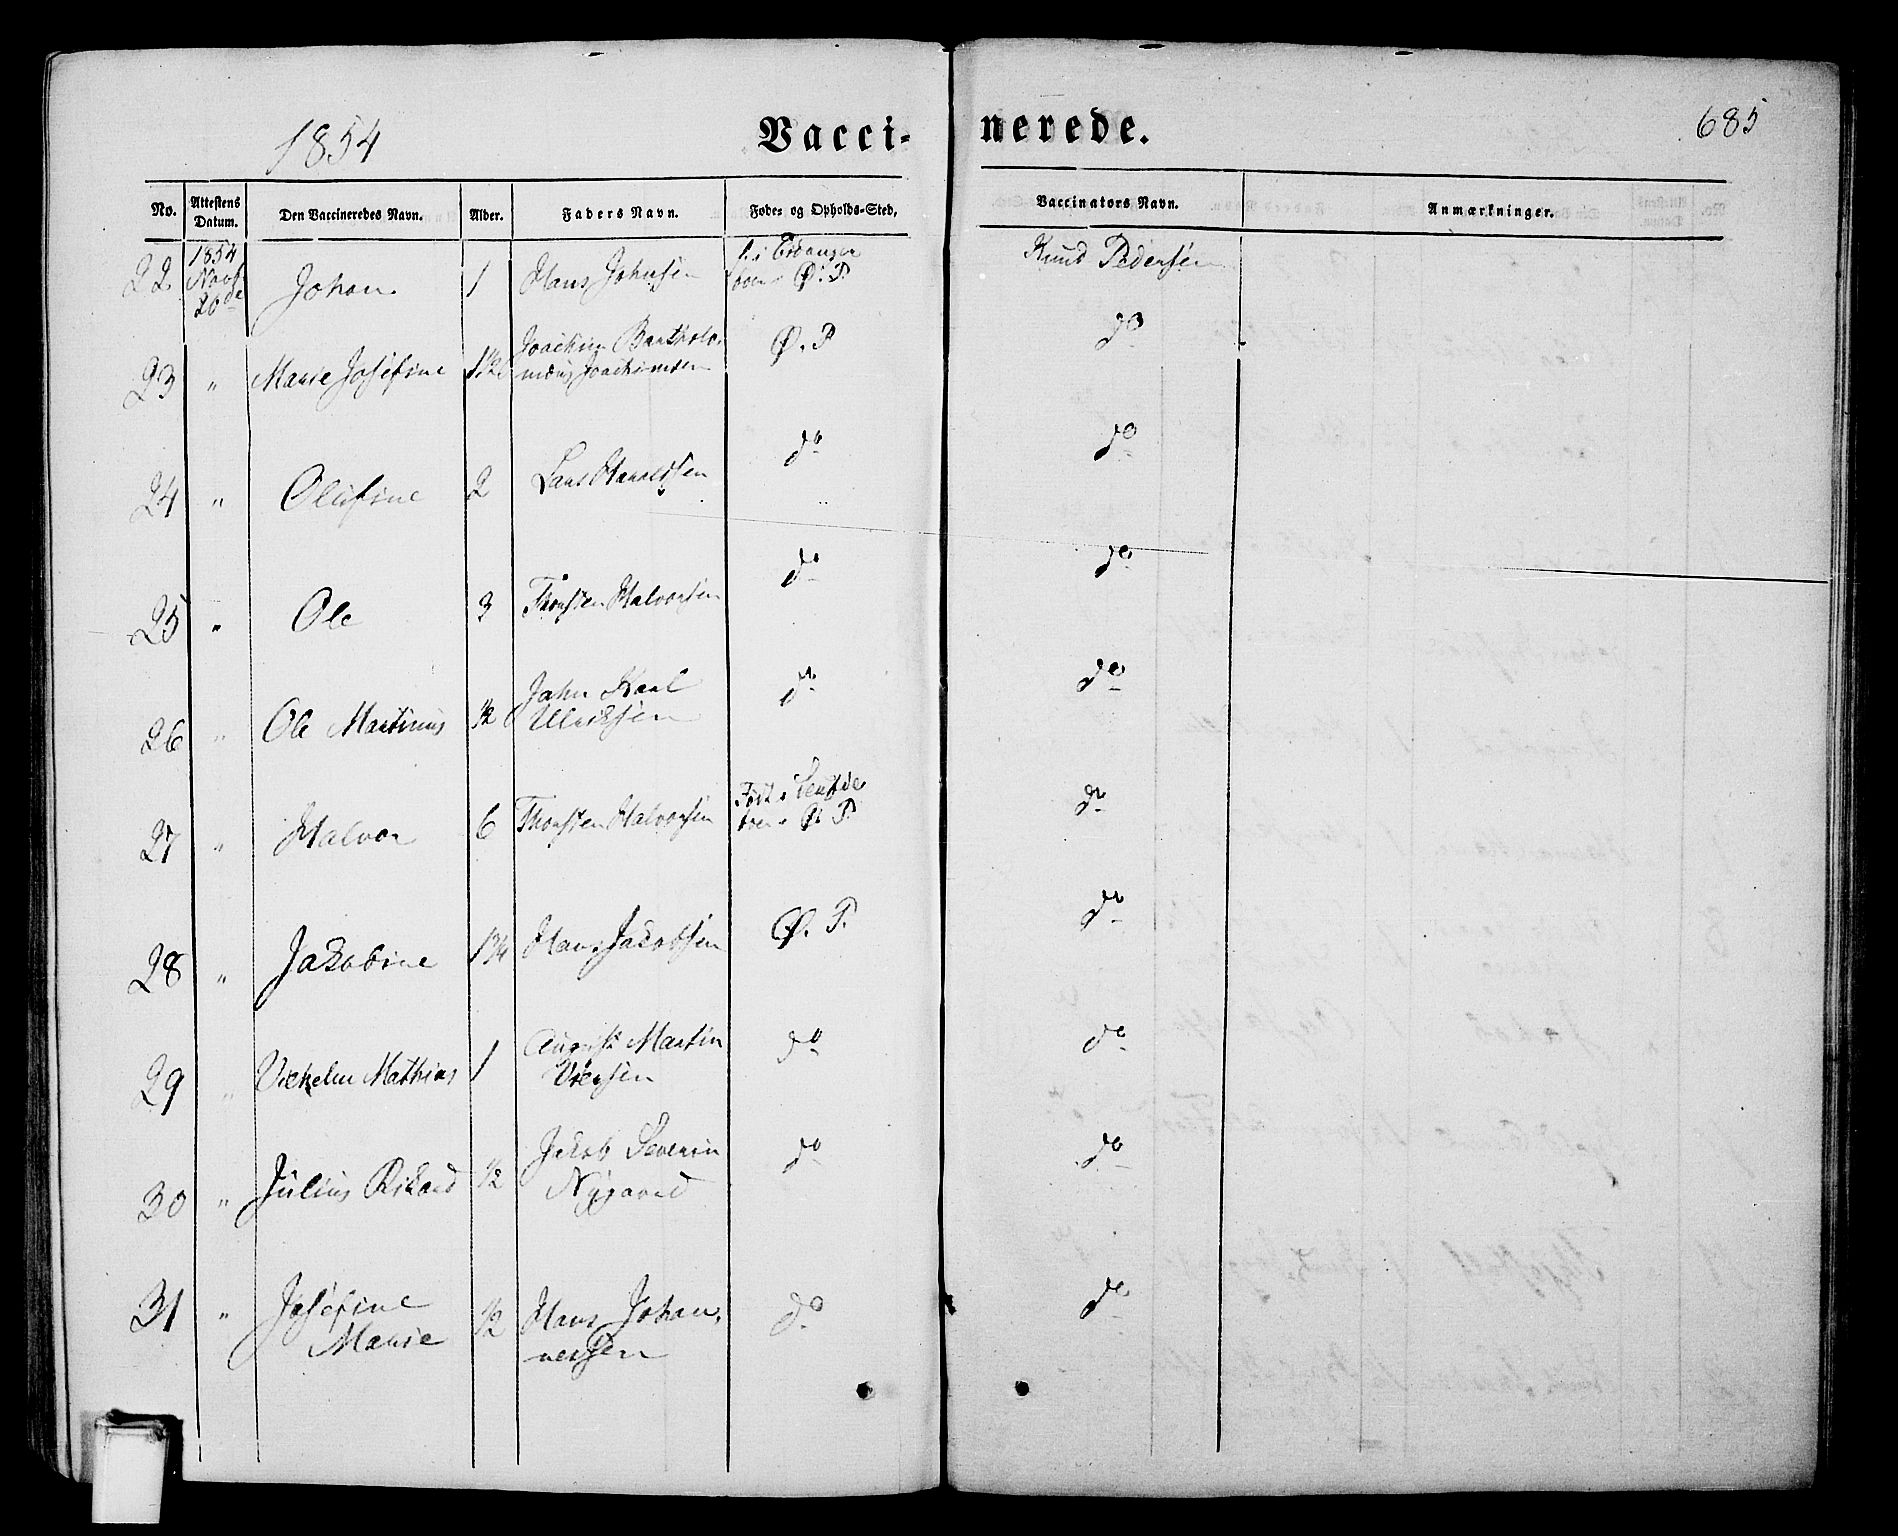 1854 Vacci- nerede. 685
No. Attestens Datum. Den Vaccineredes Navn. Alder. Faders Navn. Føde- og Opholds-Sted, Vaccinators Navn. Anmærkninger.
22 1854 Novbr 20de Johan 1 Hans Johnsen f. i Eidanger boer i Ø. P. Knud Pedersen
23 " Marie Josefine 1 1/2 Joachim Bartholo-
mæus Joachimsen Ø. P do
24 " Olufine 2 Lars Haraldsen do do
25 " Ole 3 Thorsten Halvorsen do do
26 " Ole Martinus 1/2 John Karl
Ulriksen do do
27 " Halvor 6 Thorsten Halvorsen Født i
boer i Ø. P. do
28 " Jakobine 1 3/4 Hans Jakobsen Ø. P. do
29 " Vilhelm Mathias 1 August Martin
do do
30 " Julius Rikard 1/2 Jakob Severin
Nygaard do do
31 " Josefine
Marie 1/2 Hans Johan-
nessen do do